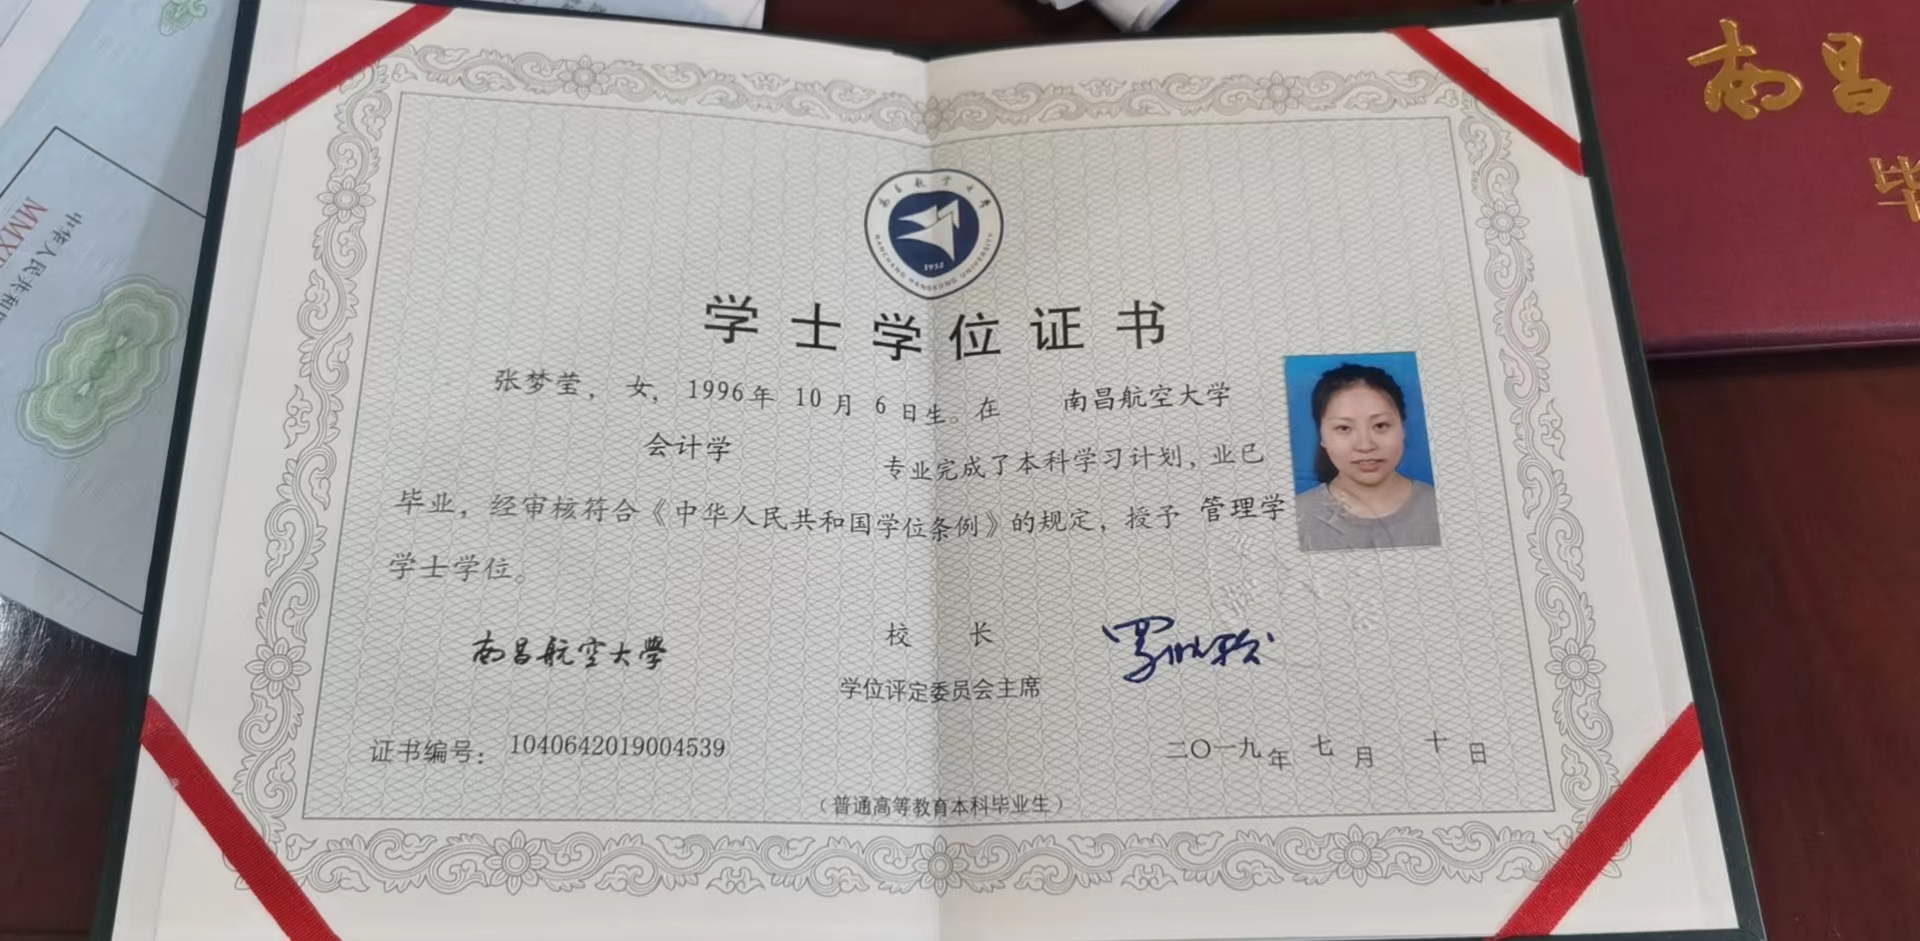 南昌
毕
中华人民共和
南昌航空大学
NANCHANG HANGKONG UNIVERSITY
1952
学士学位证书
张梦莹，女，1996年 10月 6日生。在 南昌航空大学
会计学 专业完成了本科学习计划，业已
毕业，经审核符合《中华人民共和国学位条例》的规定，授予 管理学
学士学位。
南昌航空大學
校 长
学位评定委员会主席
证书编号：1040642019004539
二〇一九年 七月 十日
（普通高等教育本科毕业生）